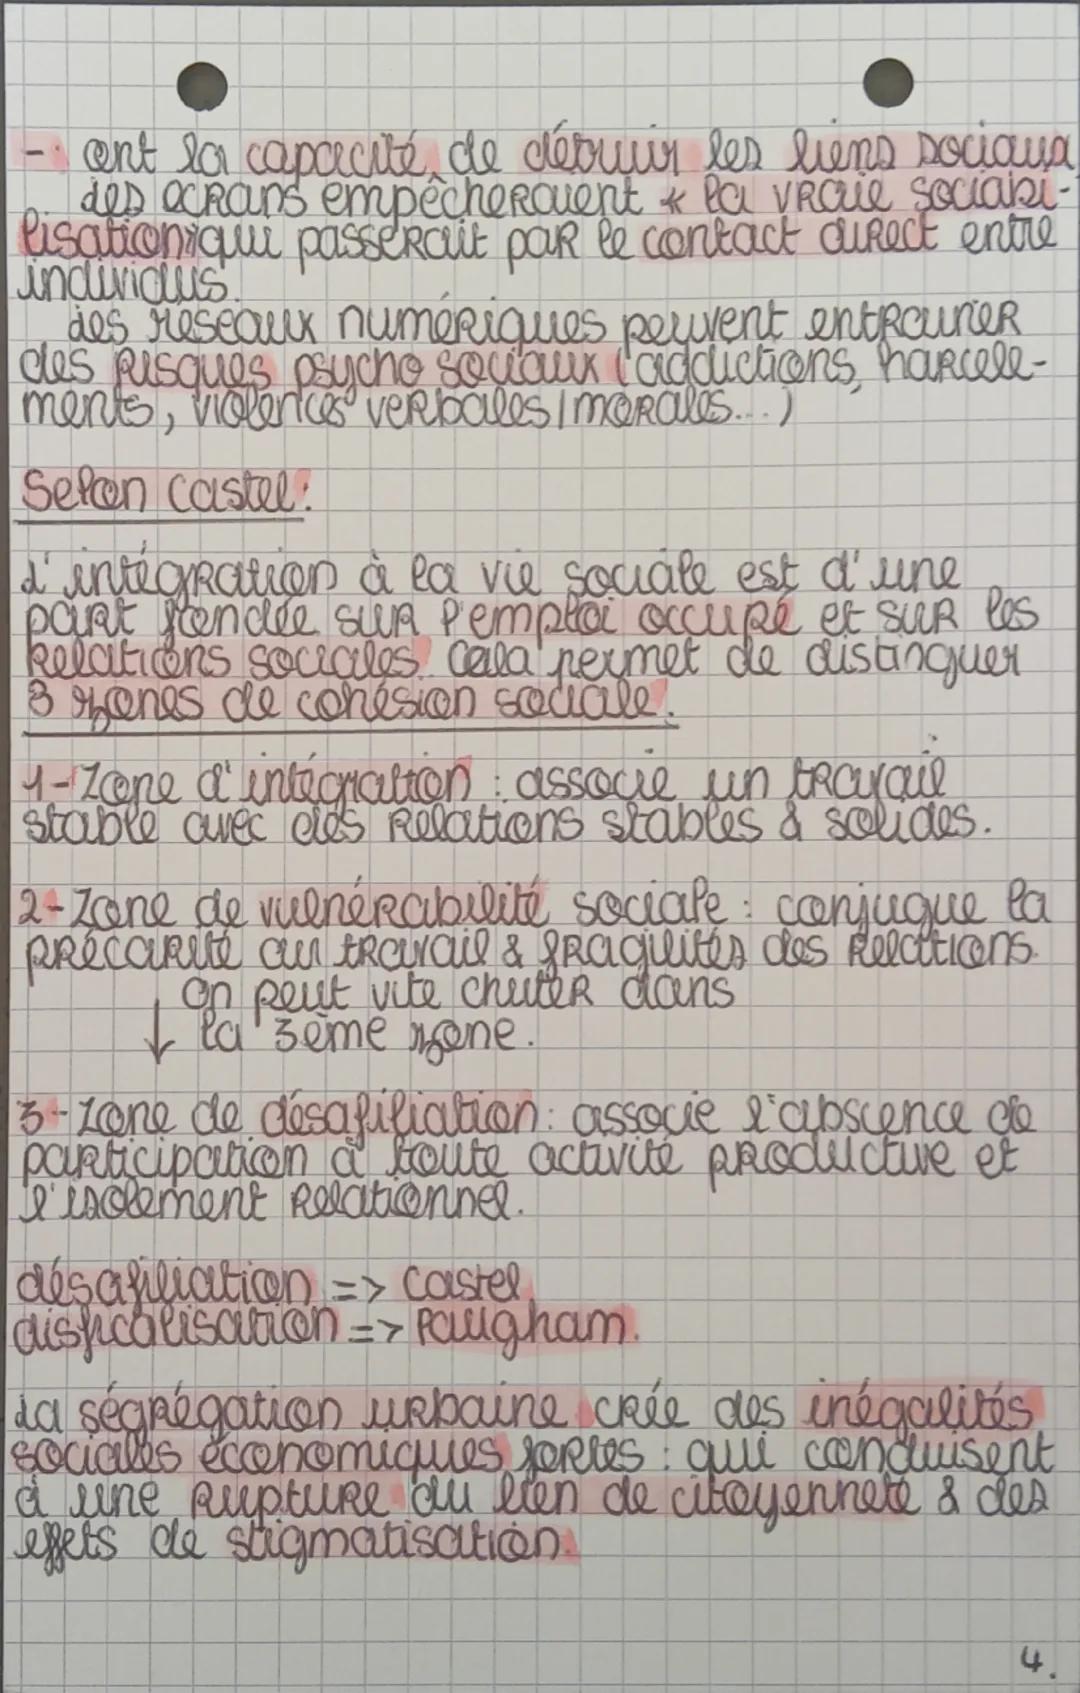 - ont la capacité de détruir les liens sociaux
des écrans empêcheraient * la vraie sociabi-
lisation qui passerait par le contact direct entre
individus.
des réseaux numériques peuvent entrainer
des risques psycho sociaux (addictions, harcele-
ments, violences verbales/morales...)
Selon Castel:
L'intégration à la vie sociale est d'une
part fondée sur l'emploi occupé et sur les
relations sociales. Cela permet de distinguer
3 zones de cohésion sociale.
1- Zone d'intégration : associe un travail
stable avec des relations stables & solides.
2- Zone de vulnérabilité sociale : conjugue la
précarité au travail & fragilités des relations.
on peut vite chuter dans
↓ la 3ème zone.
3- Zone de désafiliation: associe l'abscence de
participation à toute activité productive et
l'isolement relationnel.
désafiliation => Castel
=> Paugham.
La ségrégation urbaine crée des inégalités
sociales économiques fortes : qui conduisent
à une rupture du lien de citoyenneté & des
effets de stigmatisation.
4.